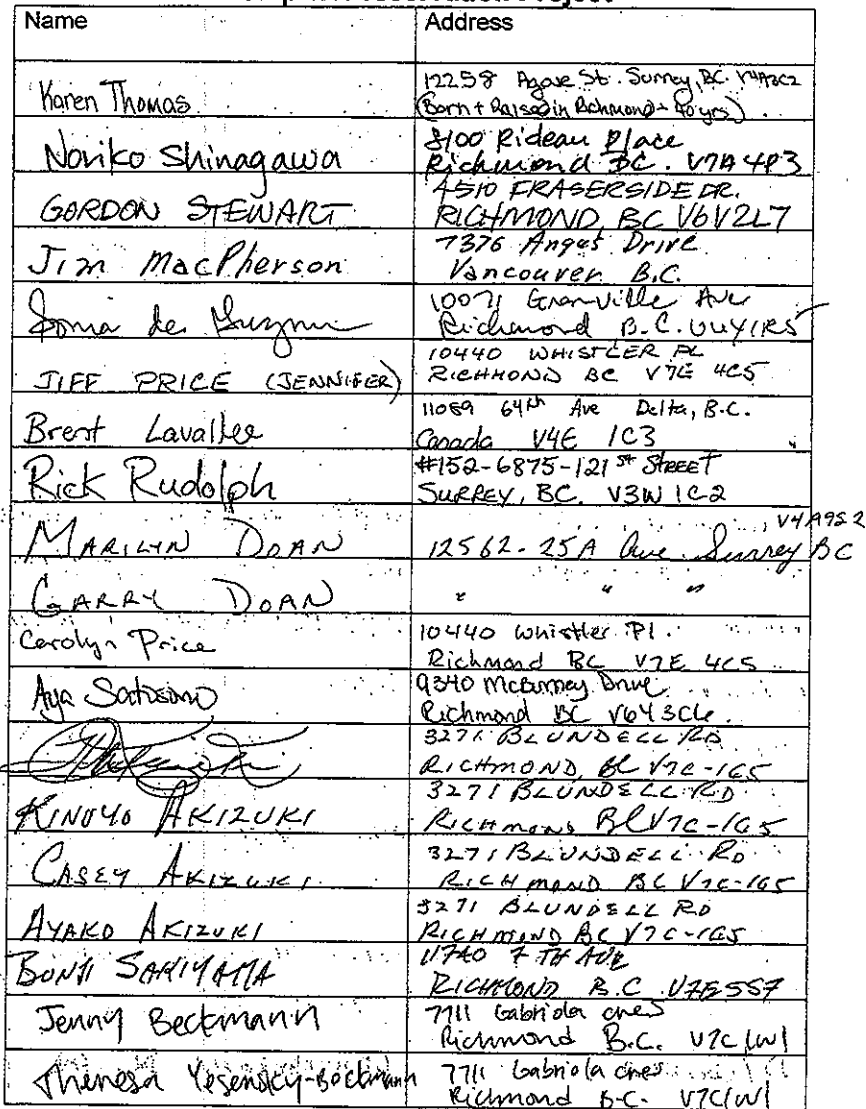 Project
Name Address
Karen Thomas 12258 Agave St. Surrey, BC. V4A3C2
(Born + Raised in Richmond - 40 yrs)
Noriko Shinagawa 8100 Rideau Place
Richmond BC. V7A 4P3
GORDON STEWART 4510 FRASERSIDE DR.
RICHMOND, BC V6V2L7
Jim MacPherson 7376 Angus Drive
Vancouver B.C.
Sonia de Guzman 10071 Granville Ave
Richmond B.C.
JIFF PRICE (JENNIFER) 10440 WHISTLER PL
RICHMOND BC V7E 4C5
Brent Lavallee 11089 64th Ave Delta, B.C.
Canada V4E 1C3
Rick Rudolph #152-6875-121st STREET
SURREY, BC. V3W 1C2
MARILYN DOAN 12562-25A Ave Surrey BC
GARRY DOAN " " "
Carolyn Price 10440 Whistler Pl.
Richmond BC V7E 4C5
Aya 9340 McBurney Drive
Richmond BC
3271 BLUNDELL RD
RICHMOND, BC V7C-1G5
KINUYO AKIZUKI 3271 BLUNDELL RD
RICHMOND BC V7C-1G5
CASEY AKIZUKI 3271 BLUNDELL RD
RICHMOND BC V7C-1G5
AYAKO AKIZUKI 3271 BLUNDELL RD
RICHMOND BC V7C-1G5
BUNJI SAKIYAMA 11740 7TH AVE
RICHMOND B.C.
Jenny Beckmann 7711 Gabriola cres
Richmond B.C. V7C 1W1
Theresa Yesensky-Beckmann 7711 Gabriola cres
Richmond B.C. V7C1W1